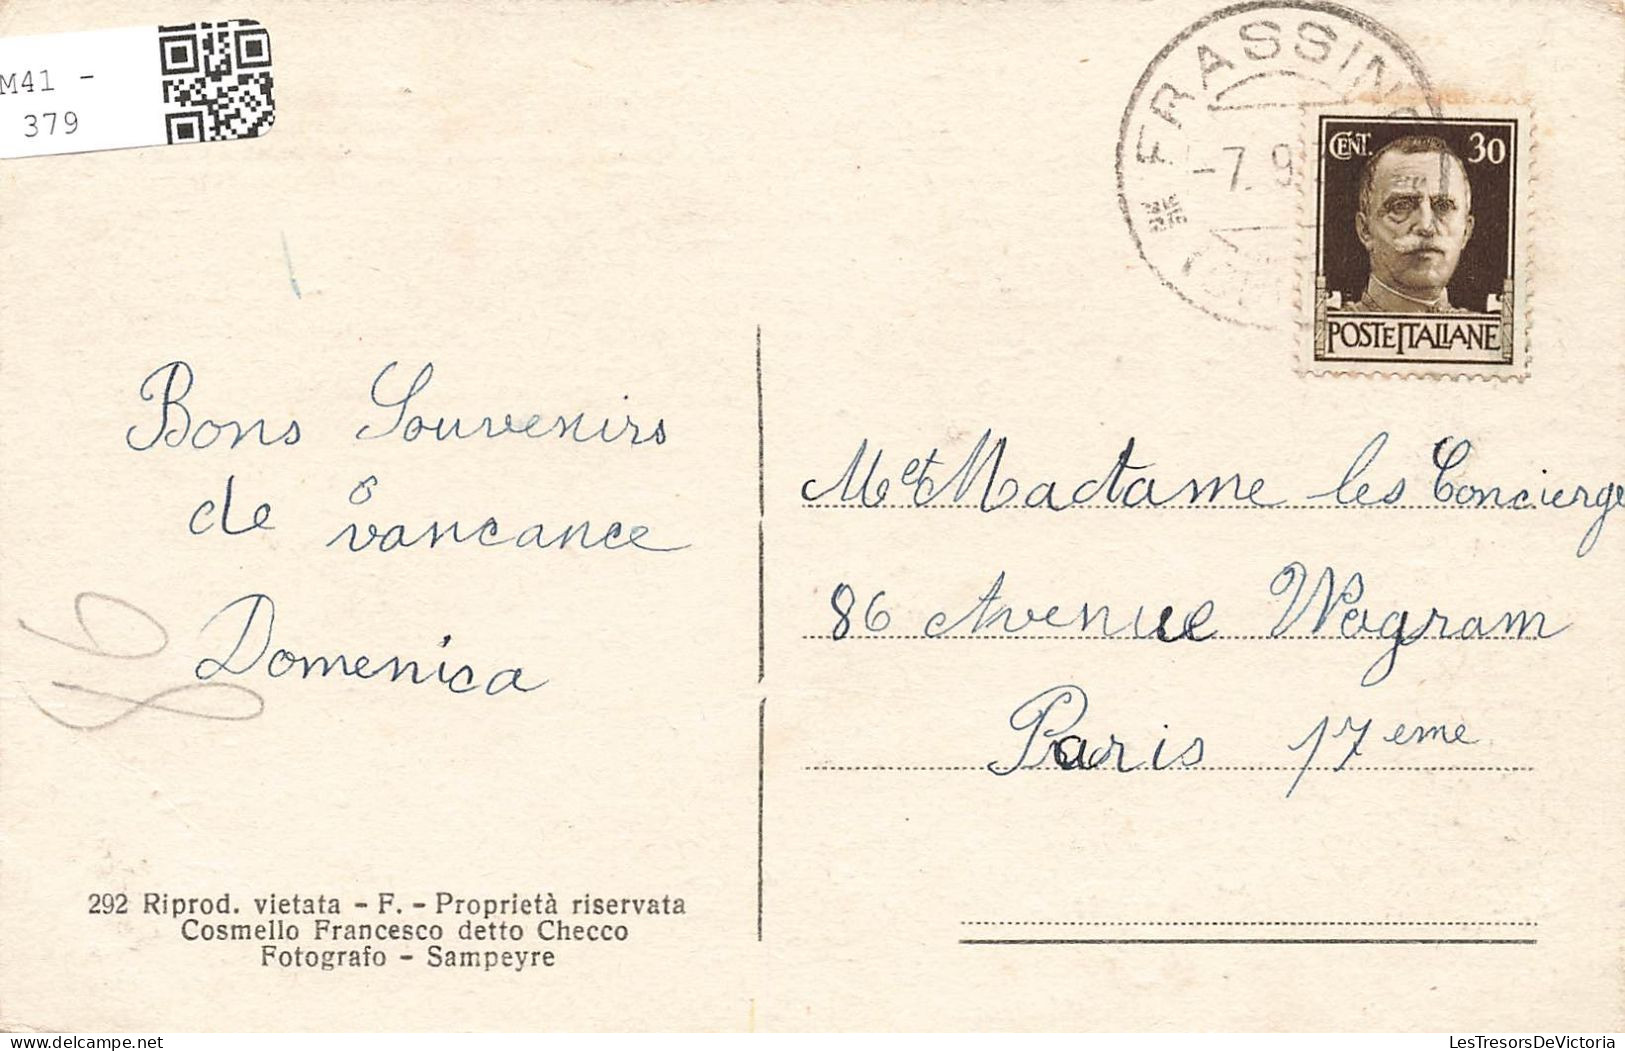 M41 -
379
FRASSINO
-7. 9
CENT. 30
POSTE ITALIANE
Bons Souvenirs
de vancance
Domenica
86
Met Madame les Concierge
86 Avenue Wagram
Paris 17eme
292 Riprod. vietata - F. - Proprietà riservata
Cosmello Francesco detto Checco
Fotografo - Sampeyre
www.LesTresorsDeVictoria.com